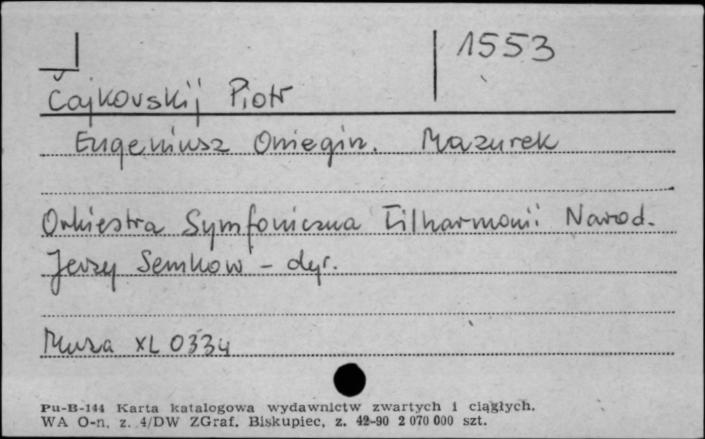 1553
Čajkovskij Piotr
Eugeniusz Oniegin. Mazurek
Orkiestra Symfoniczna Filharmonii Narod.
Jerzy Semkow - dyr.
Muza XL 0334
Pu-B-144 Karta katalogowa wydawnictw zwartych i ciągłych.
WA O-n, z. 4/DW ZGraf. Biskupiec, z. 42-90 2 070 000 szt.